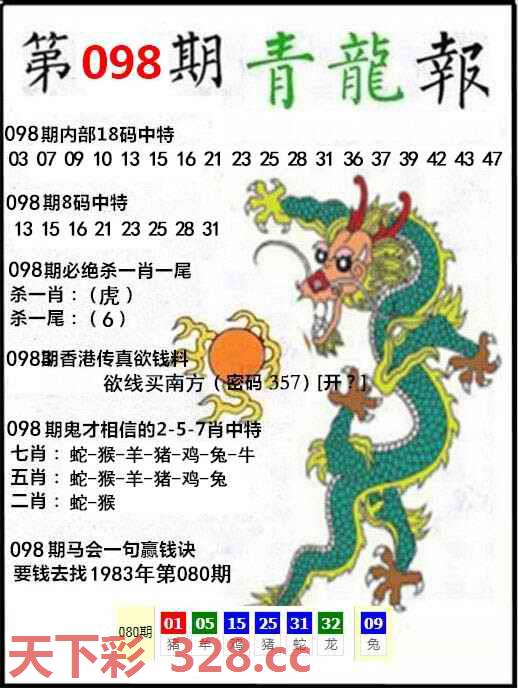 第098期青龍報
098期内部18码中特
03 07 09 10 13 15 16 21 23 25 28 31 36 37 39 42 43 47
098期8码中特
13 15 16 21 23 25 28 31
098期必绝杀一肖一尾
杀一肖：（虎）
杀一尾：（6）
098期香港传真欲钱料
欲线买南方（密码 357）[开？]
098期鬼才相信的2-5-7肖中特
七肖：蛇-猴-羊-猪-鸡-兔-牛
五肖：蛇-猴-羊-猪-鸡-兔
二肖：蛇-猴
098期马会一句赢钱诀
要钱去找1983年第080期
080期 01 05 15 25 31 32 09
猪 羊 鸡 猪 蛇 龙 兔
天下彩 328.cc